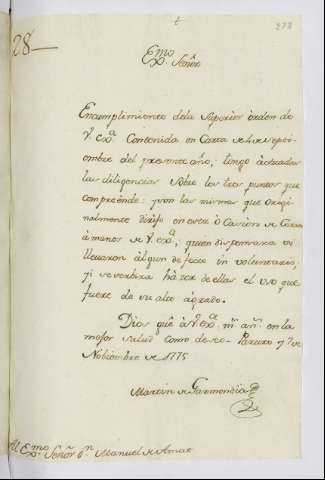 28
Exmo
Señor
En cumplimiento dela Superior orden de
V. Exa. Contenida en Carta de 4 de Septi
embre del presente año, tengo actuadas
las diligencias sobre los tres puntos que
comprende: y son las mismas que origi
nalmente dirijo en este
à manos de V. Exa., quien dispensara si
llevaren algun defecto in voluntario,
y se servirá hàzer de ellas el uso que
fuere de su alto agrado.
Dios gue. à V. Exa. ms. as. en la
mejor salud como deseo. Paruro y 7 de
Nobiembre de 1775
Martin de Garmendia
Al Exmo. Señor Dn. Manuel de Amat